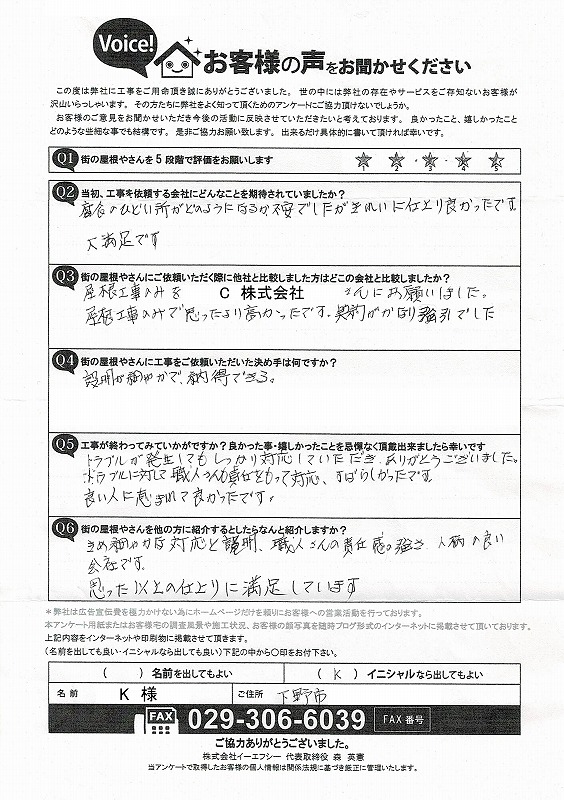 Voice!
お客様の声をお聞かせください
この度は弊社に工事をご用命頂き誠にありがとうございました。 世の中には弊社の存在やサービスをご存知ないお客様が
沢山いらっしゃいます。 その方たちに弊社をよく知って頂くためのアンケートにご協力頂けないでしょうか。
お客様のご意見をお聞かせいただき今後の活動に反映させていただきたいと考えております。 良かったこと、嬉しかったこと
どのような些細な事でも結構です。 是非ご協力お願い致します。 出来るだけ具体的に書いて頂ければ幸いです。
Q1 街の屋根やさんを5段階で評価をお願いします
1 2 3 4 5
Q2 当初、工事を依頼する会社にどんなことを期待されていましたか?
腐食のひどい所がどのようになるか不安でしたがきれいに仕上り良かったです。
大満足です
Q3 街の屋根やさんにご依頼いただく際に他社と比較しました方はどこの会社と比較しましたか?
屋根工事のみを C 株式会社 さんにお願いしました。
屋根工事のみで思ったより高かったです。契約がかなり強引でした
Q4 街の屋根やさんに工事をご依頼いただいた決め手は何ですか?
説明が細やかで、納得できる。
Q5 工事が終わってみていかがですか?良かった事・嬉しかったことを忌憚なく頂戴出来ましたら幸いです
トラブルが発生してもしっかり対応していただき、ありがとうございました。
トラブルに対して職人さんも責任をもって対応、すばらしかったです。
良い人に恵まれて良かったです。
Q6 街の屋根やさんを他の方に紹介するとしたらなんと紹介しますか?
きめ細やかな対応と説明、職人さんの責任感の強さ、人柄の良い
会社です。
思った以上の仕上りに満足しています
*弊社は広告宣伝費を極力かけない為にホームページだけを頼りにお客様への営業活動を行っております。
本アンケート用紙またはお客様宅の調査風景や施工状況、お客様の顔写真を随時ブログ形式のインターネットに掲載させて頂いております。
上記内容をインターネットや印刷物に掲載させて頂きます。
(名前を出しても良い・イニシャルなら出しても良い)下記の中から○印をお付下さい。
( ) 名前を出してもよい ( K ) イニシャルなら出してもよい
名前 K 様 ご住所 下野市
FAX 029-306-6039 FAX 番号
ご協力ありがとうございました。
株式会社イーエフシー 代表取締役 森 英憲
当アンケートで取得したお客様の個人情報は関係法規に基づき厳正に管理いたします。